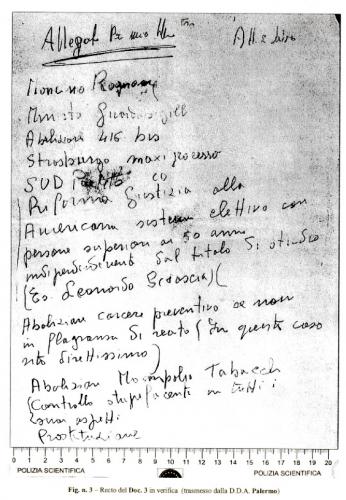 Allegato Per mio libro
Mancino Rognoni
Ministro Guardasigill
Abolizione 416 bis
Strasburgo maxi processo
SUD Partito
Riforma Giustizia alla
Americana sistema elettivo con
persone superiori ai 50 anni
indipendentemente dal titolo di studio
(Es. Leonardo Sciascia)(
Abolizione carcere preventivo se non
in flagranza di reato (In questo caso
rito direttissimo)
Abolizione Monopolio Tabacchi
(Controllo stupefacenti in tutti i
suoi aspetti
Prostituzione
0 1 2 3 4 5 6 7 8 9 10 11 12 13 14 15 16 17 18 19 20
POLIZIA SCIENTIFICA POLIZIA SCIENTIFICA
Fig. n. 3 – Recto del Doc. 3 in verifica (trasmesso dalla D.D.A. Palermo)